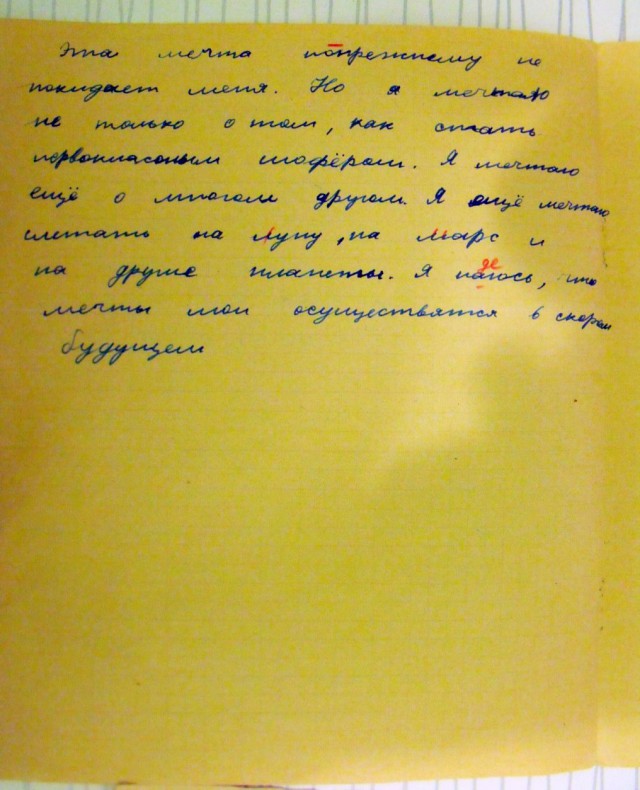 Эта мечта попрежнему не
покидает меня. Но я мечтаю
не только о том, как стать
первокласным шофёром. Я мечтаю
ещё о многом другом. Я ещё мечтаю
слетать на Луну, на Марс и
на другие планеты. Я надеюсь, что
мечты мои осуществятся в скором
будущем